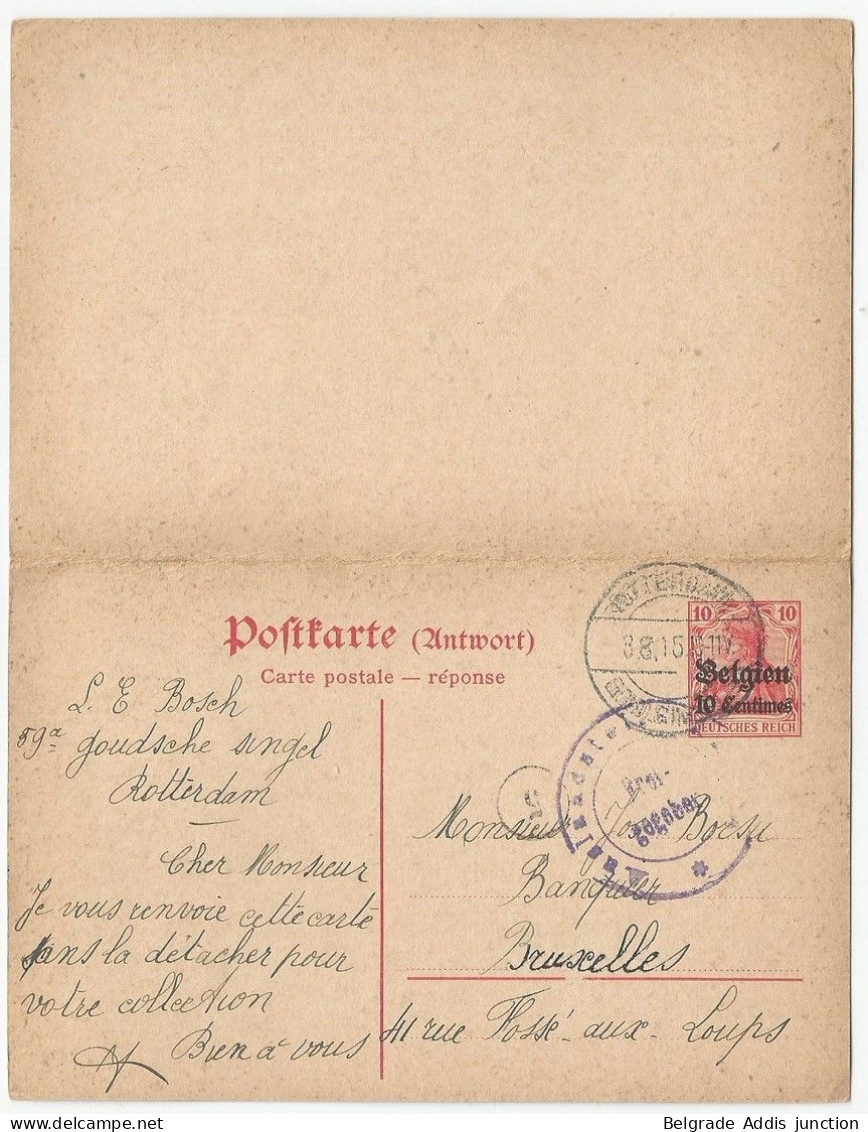 Postkarte (Antwort)
Carte postale — réponse
10 10
Belgien
10 Centimes
DEUTSCHES REICH
ROTTERDAM
8.15
L. E Bosch
59a goudsche singel
Rotterdam
Cher Monsieur
Je vous renvoie cette carte
sans la détacher pour
votre collection
Bien à vous
Monsieur Borsu
Banquier
Bruxelles
41 rue Fossé-aux-Loups
Frei-
gegeben
Belgrade Addis junction